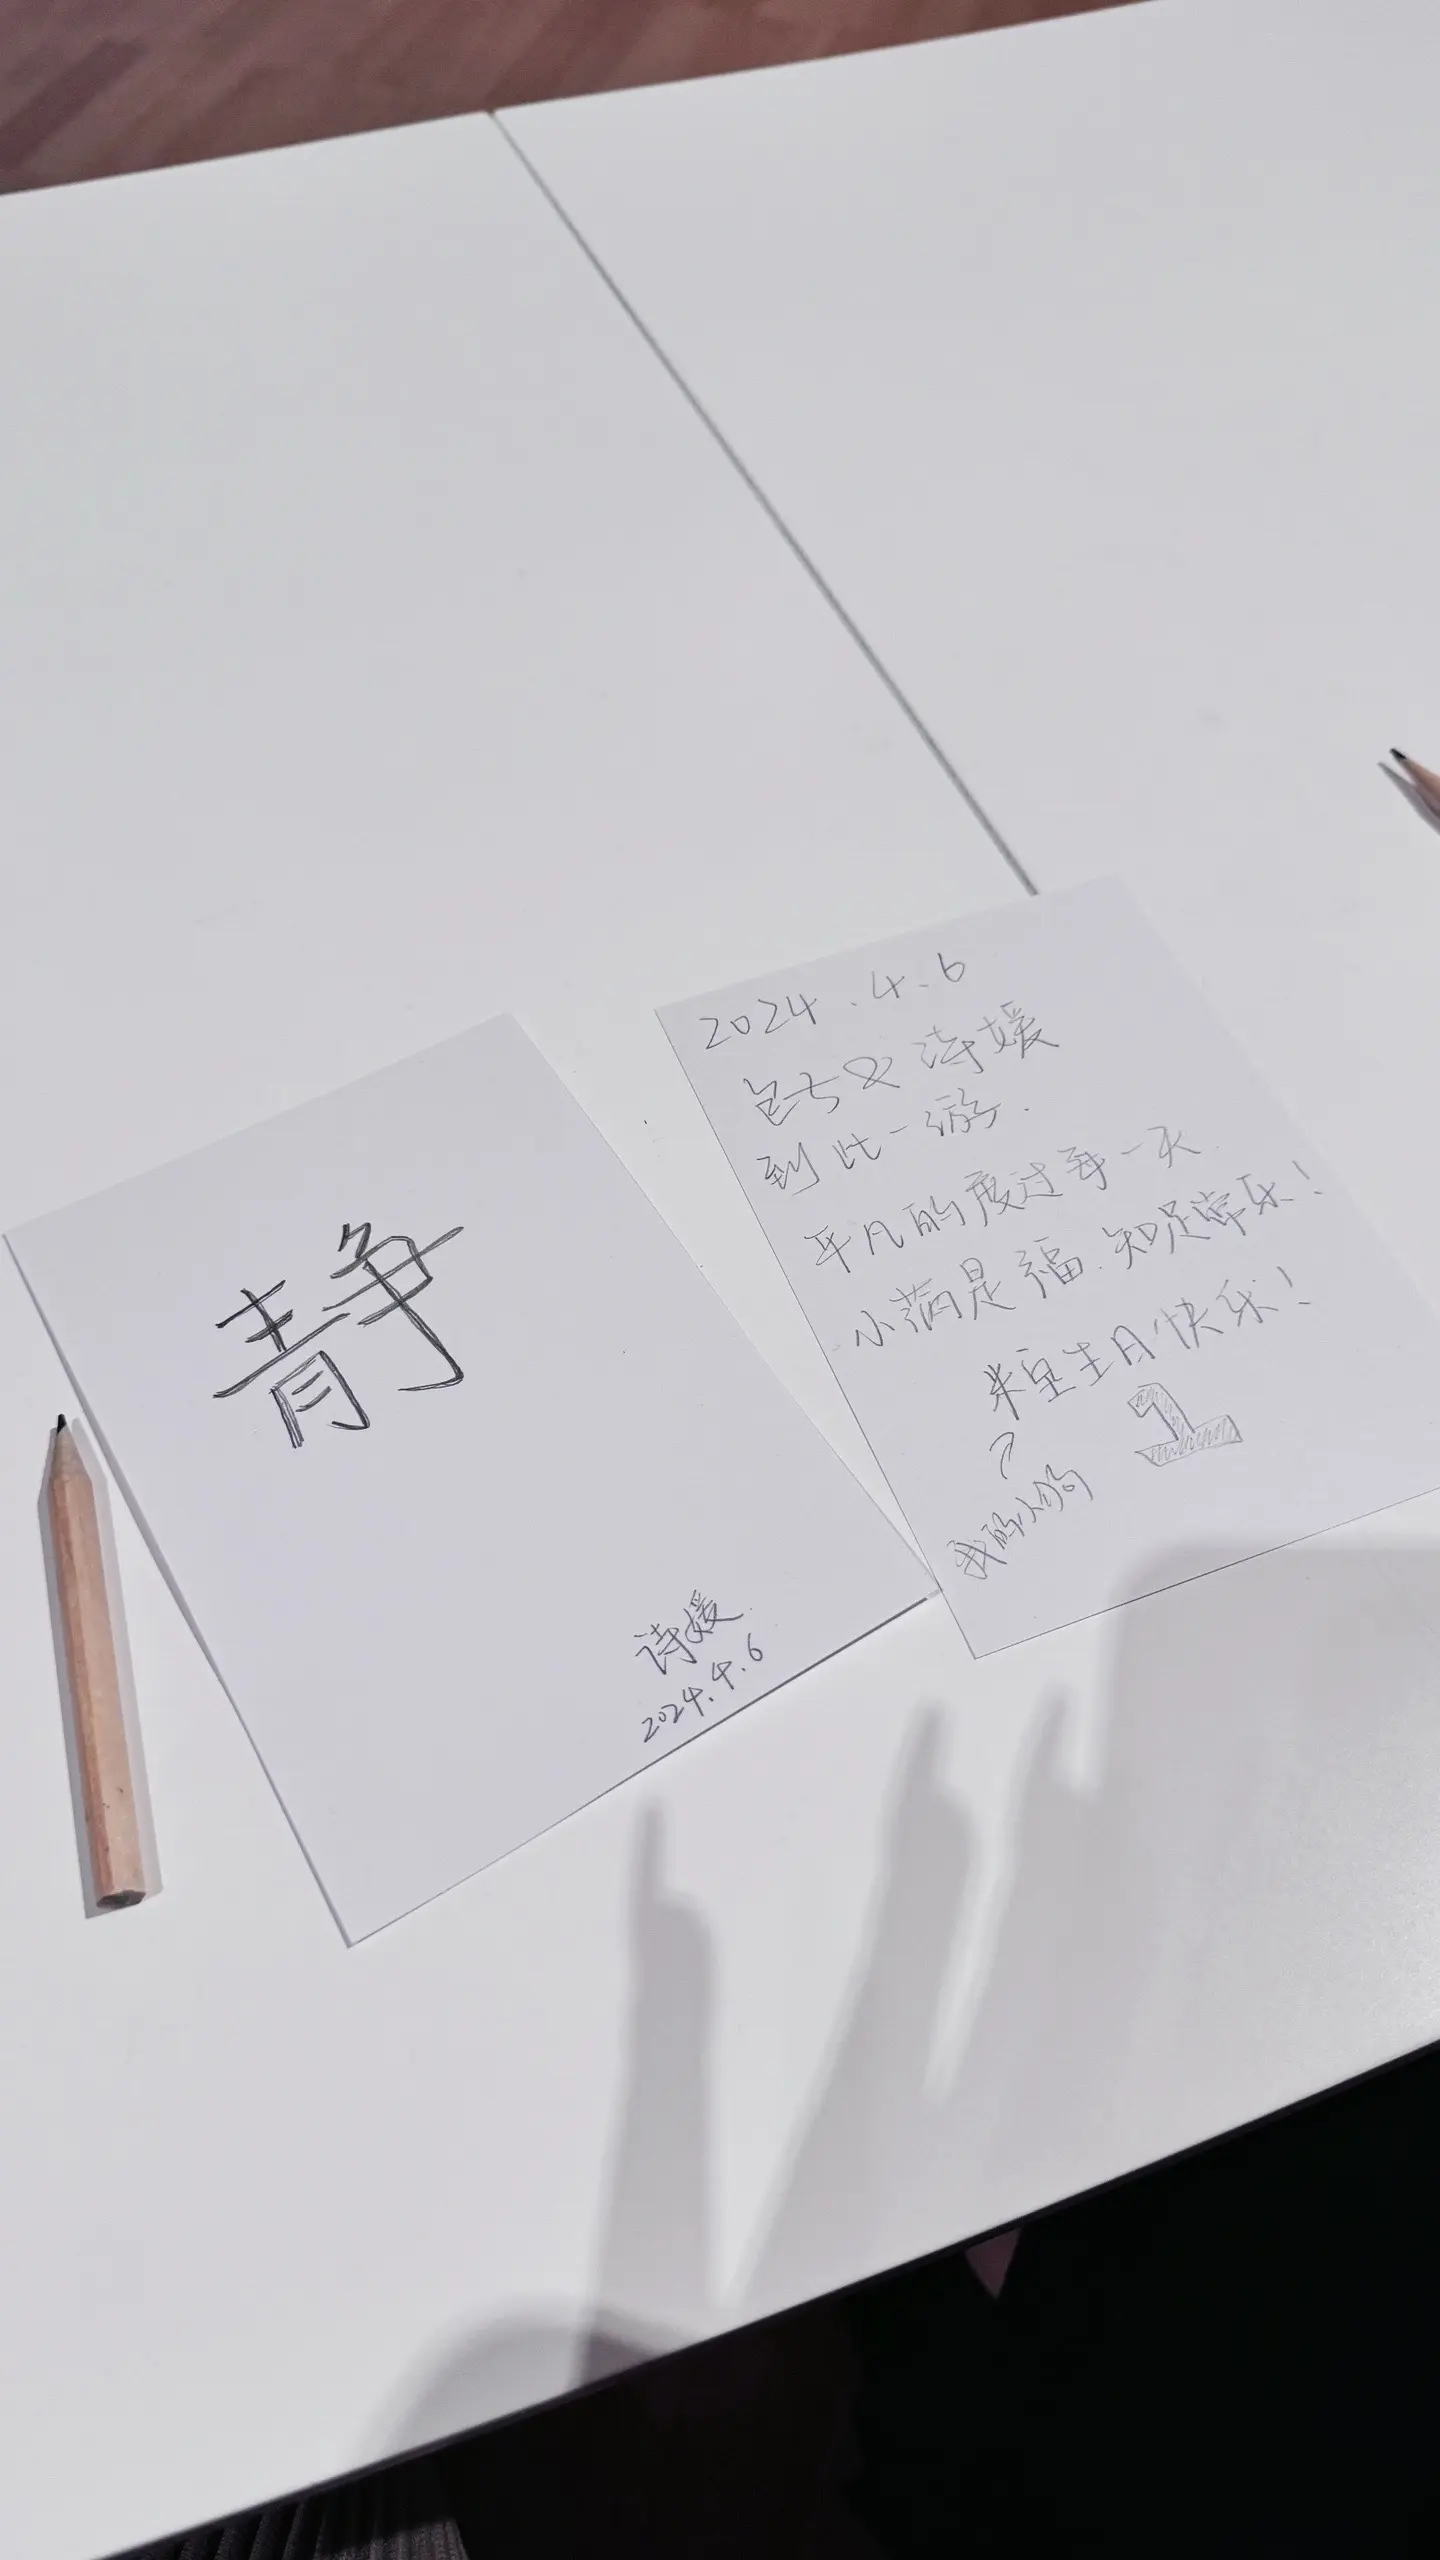 静
诗媛
2024.4.6
2024.4.6
& 诗媛
到此一游.
平凡的度过每一天.
小满是福.知足常乐!
米豆生日快乐!
1
我的小狗